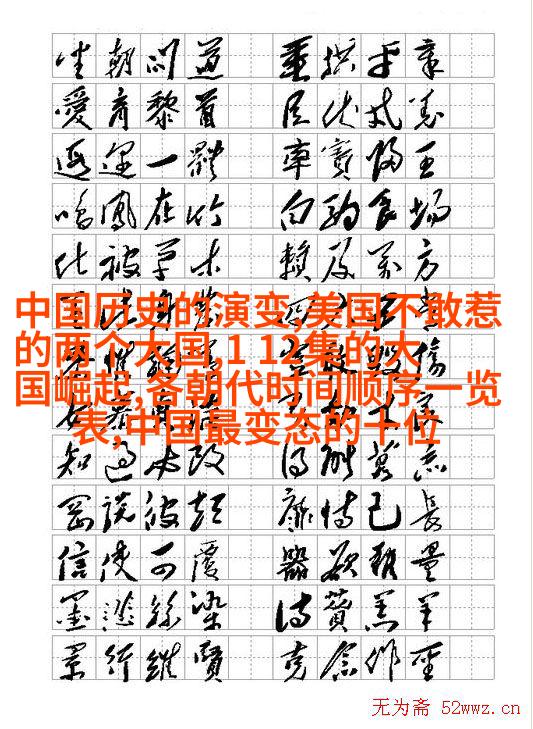 坐朝问道 垂拱平章
愛育黎首 臣伏戎羌
遐迩一體 率賓歸王
鳴鳳在竹 白駒食場
化被草木 賴及萬方
中国历史的演变,美国不敢惹
的两个大国,1 12集的大
国崛起,各朝代时间顺序一览
表,中国最变态的十位
知過必改 得能莫忘
罔談彼短 靡恃己長
信使可覆 器欲難量
墨悲絲染 詩贊羔羊
景行維賢 克念作聖
无为斋 52wwz.cn